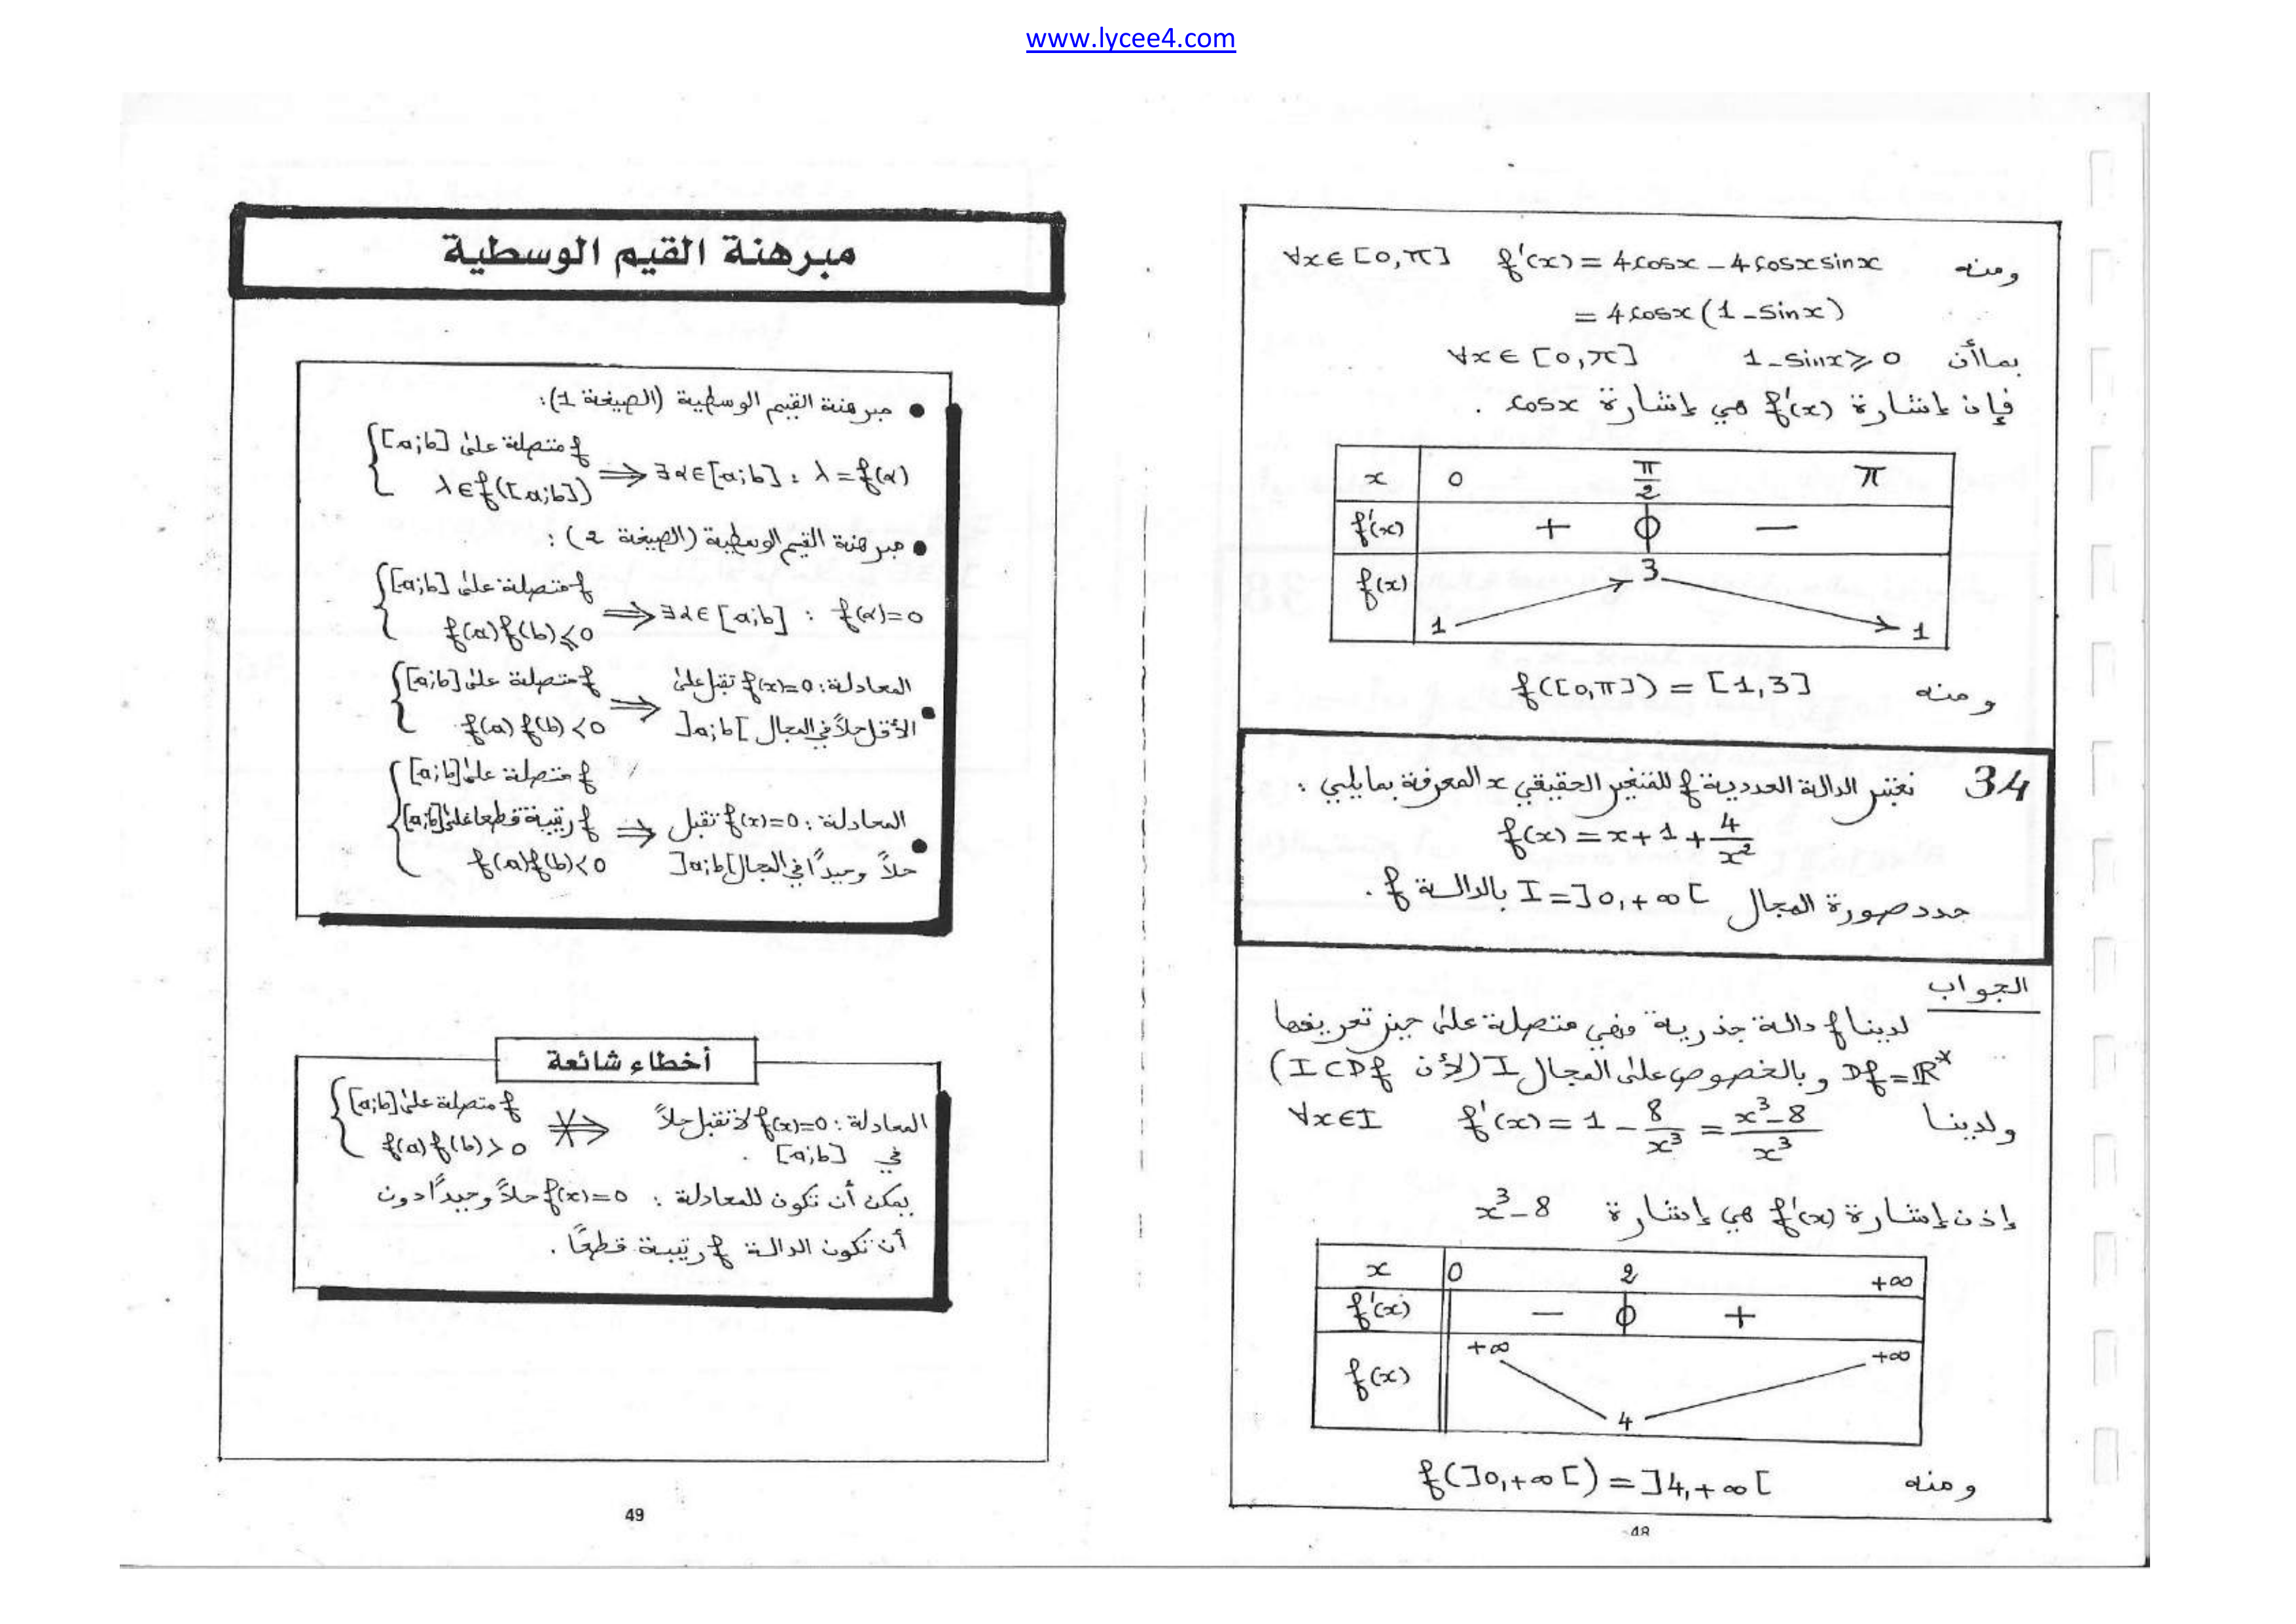 www.lycee4.com
ومنه ∀x∈[0,π] f'(x) = 4cosx - 4cosxsinx
= 4cosx(1-sinx)
بما أن 1-sinx ⩾ 0 ∀x∈[0,π]
فإن إشارة f'(x) هي إشارة cosx .
x 0 π/2 π
f'(x) + 0 -
f(x) 1 3 1
ومنه f([0,π]) = [1,3]
34 نعتبر الدالة العددية f للمتغير الحقيقي x المعرفة بمايلي :
f(x) = x+1+4/x²
حدد صورة المجال I=]0,+∞[ بالدالة f .
الجواب
لدينا f دالة جذرية فهي متصلة على حيز تعريفها
Df=ℝ* وبالخصوص على المجال I (لأن I⊂Df)
ولدينا ∀x∈I f'(x) = 1 - 8/x³ = (x³-8)/x³
إذن إشارة f'(x) هي إشارة x³-8
x 0 2 +∞
f'(x) - 0 +
f(x) +∞ 4 +∞
ومنه f(]0,+∞[) = ]4,+∞[
48
مبرهنة القيم الوسطية
• مبرهنة القيم الوسطية (الصيغة 1):
{ f متصلة على [a;b]
λ∈f([a;b]) ⟹ ∃α∈[a;b] : λ=f(α)
• مبرهنة القيم الوسطية (الصيغة 2) :
{ f متصلة على [a;b]
f(a)f(b)⩽0 ⟹ ∃α∈[a;b] : f(α)=0
{ f متصلة على [a;b] ⟹ المعادلة: f(x)=0 تقبل على
• f(a)f(b)<0 الأقل حلاً في المجال ]a;b[
{ f متصلة على [a;b]
f رتيبة قطعا على [a;b] ⟹ المعادلة : f(x)=0 تقبل
• f(a)f(b)<0 حلاً وحيداً في المجال ]a;b[
أخطاء شائعة
{ f متصلة على [a;b] ⇏ المعادلة : f(x)=0 لا تقبل حلاً
f(a)f(b)>0 في [a;b] .
يمكن أن تكون للمعادلة : f(x)=0 حلاً وحيداً دون
أن تكون الدالة f رتيبة قطعًا .
49